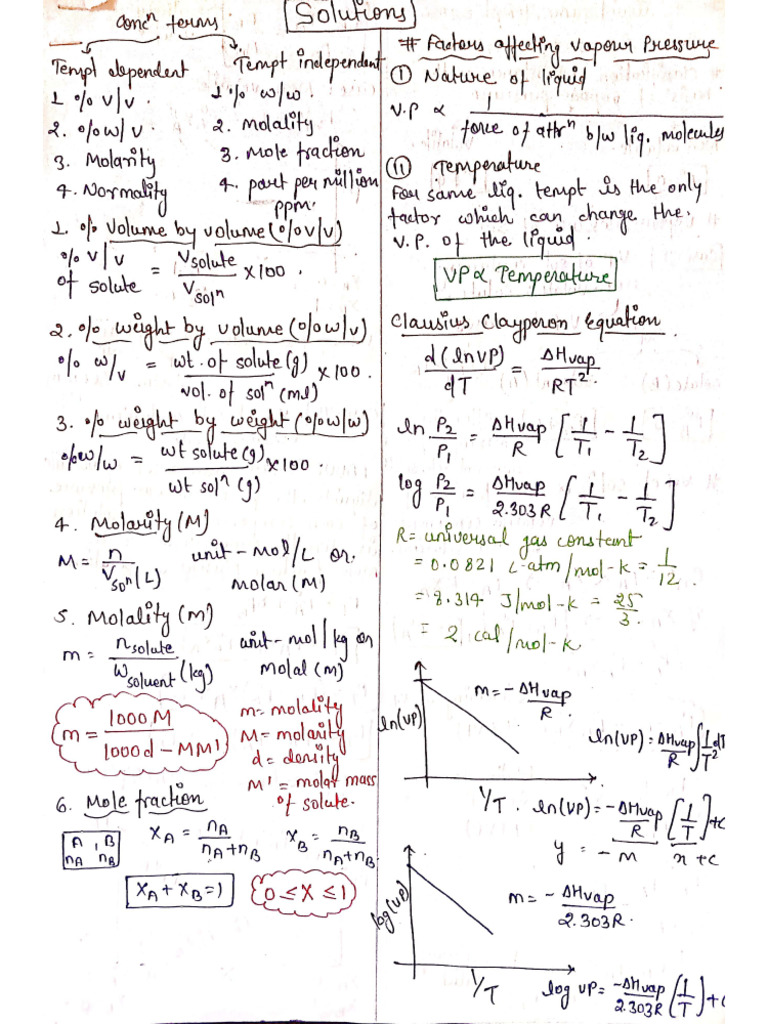 Solutions
Concⁿ terms
Tempt dependent
Tempt independent
1 % v/v.
1 % w/w.
2. % w/v.
2. Molality
3. Molarity
3. Mole fraction
4. Normality
4. part per million
ppm.
1. % Volume by volume (% v/v)
% v/v of solute = V_solute / V_solⁿ × 100.
2. % weight by volume (% w/v)
% w/v = wt. of solute (g) / vol. of solⁿ (ml) × 100.
3. % weight by weight (% w/w)
% w/w = wt solute (g) / wt solⁿ (g) × 100.
4. Molarity (M)
M = n / V_solⁿ (L)
unit - mol/L or
molar (M)
5. Molality (m)
m = n_solute / W_solvent (kg)
unit - mol/kg or
molal (m)
m = 1000M / 1000d - MM'
m = molality
M = molarity
d = density
M' = molar mass
of solute.
6. Mole fraction
A, B
nA nB
X_A = n_A / n_A + n_B
X_B = n_B / n_A + n_B.
X_A + X_B = 1
0 ≤ X ≤ 1
# Factors affecting Vapour Pressure
(I) Nature of liquid
V.P ∝ 1 / force of attrⁿ b/w liq. molecules
(II) Temperature
For same liq. tempt is the only
factor which can change the
V.P. of the liquid.
VP ∝ Temperature
Clausius Clayperon Equation
d(lnVP) / dT = ΔHvap / RT².
ln P₂/P₁ = ΔHvap / R [1/T₁ - 1/T₂]
log P₂/P₁ = ΔHvap / 2.303R [1/T₁ - 1/T₂]
R = universal gas constant
= 0.0821 L-atm/mol-k = 1/12.
= 8.314 J/mol-k = 25/3.
= 2 cal/mol-k
ln(VP)
m = - ΔHvap / R.
1/T.
ln(VP) = ΔHvap / R ∫ 1/T² dT
ln(VP) = -ΔHvap / R [1/T] + c
y = -m x + c
log(VP)
m = - ΔHvap / 2.303R.
1/T
log VP = -ΔHvap / 2.303R (1/T) + c